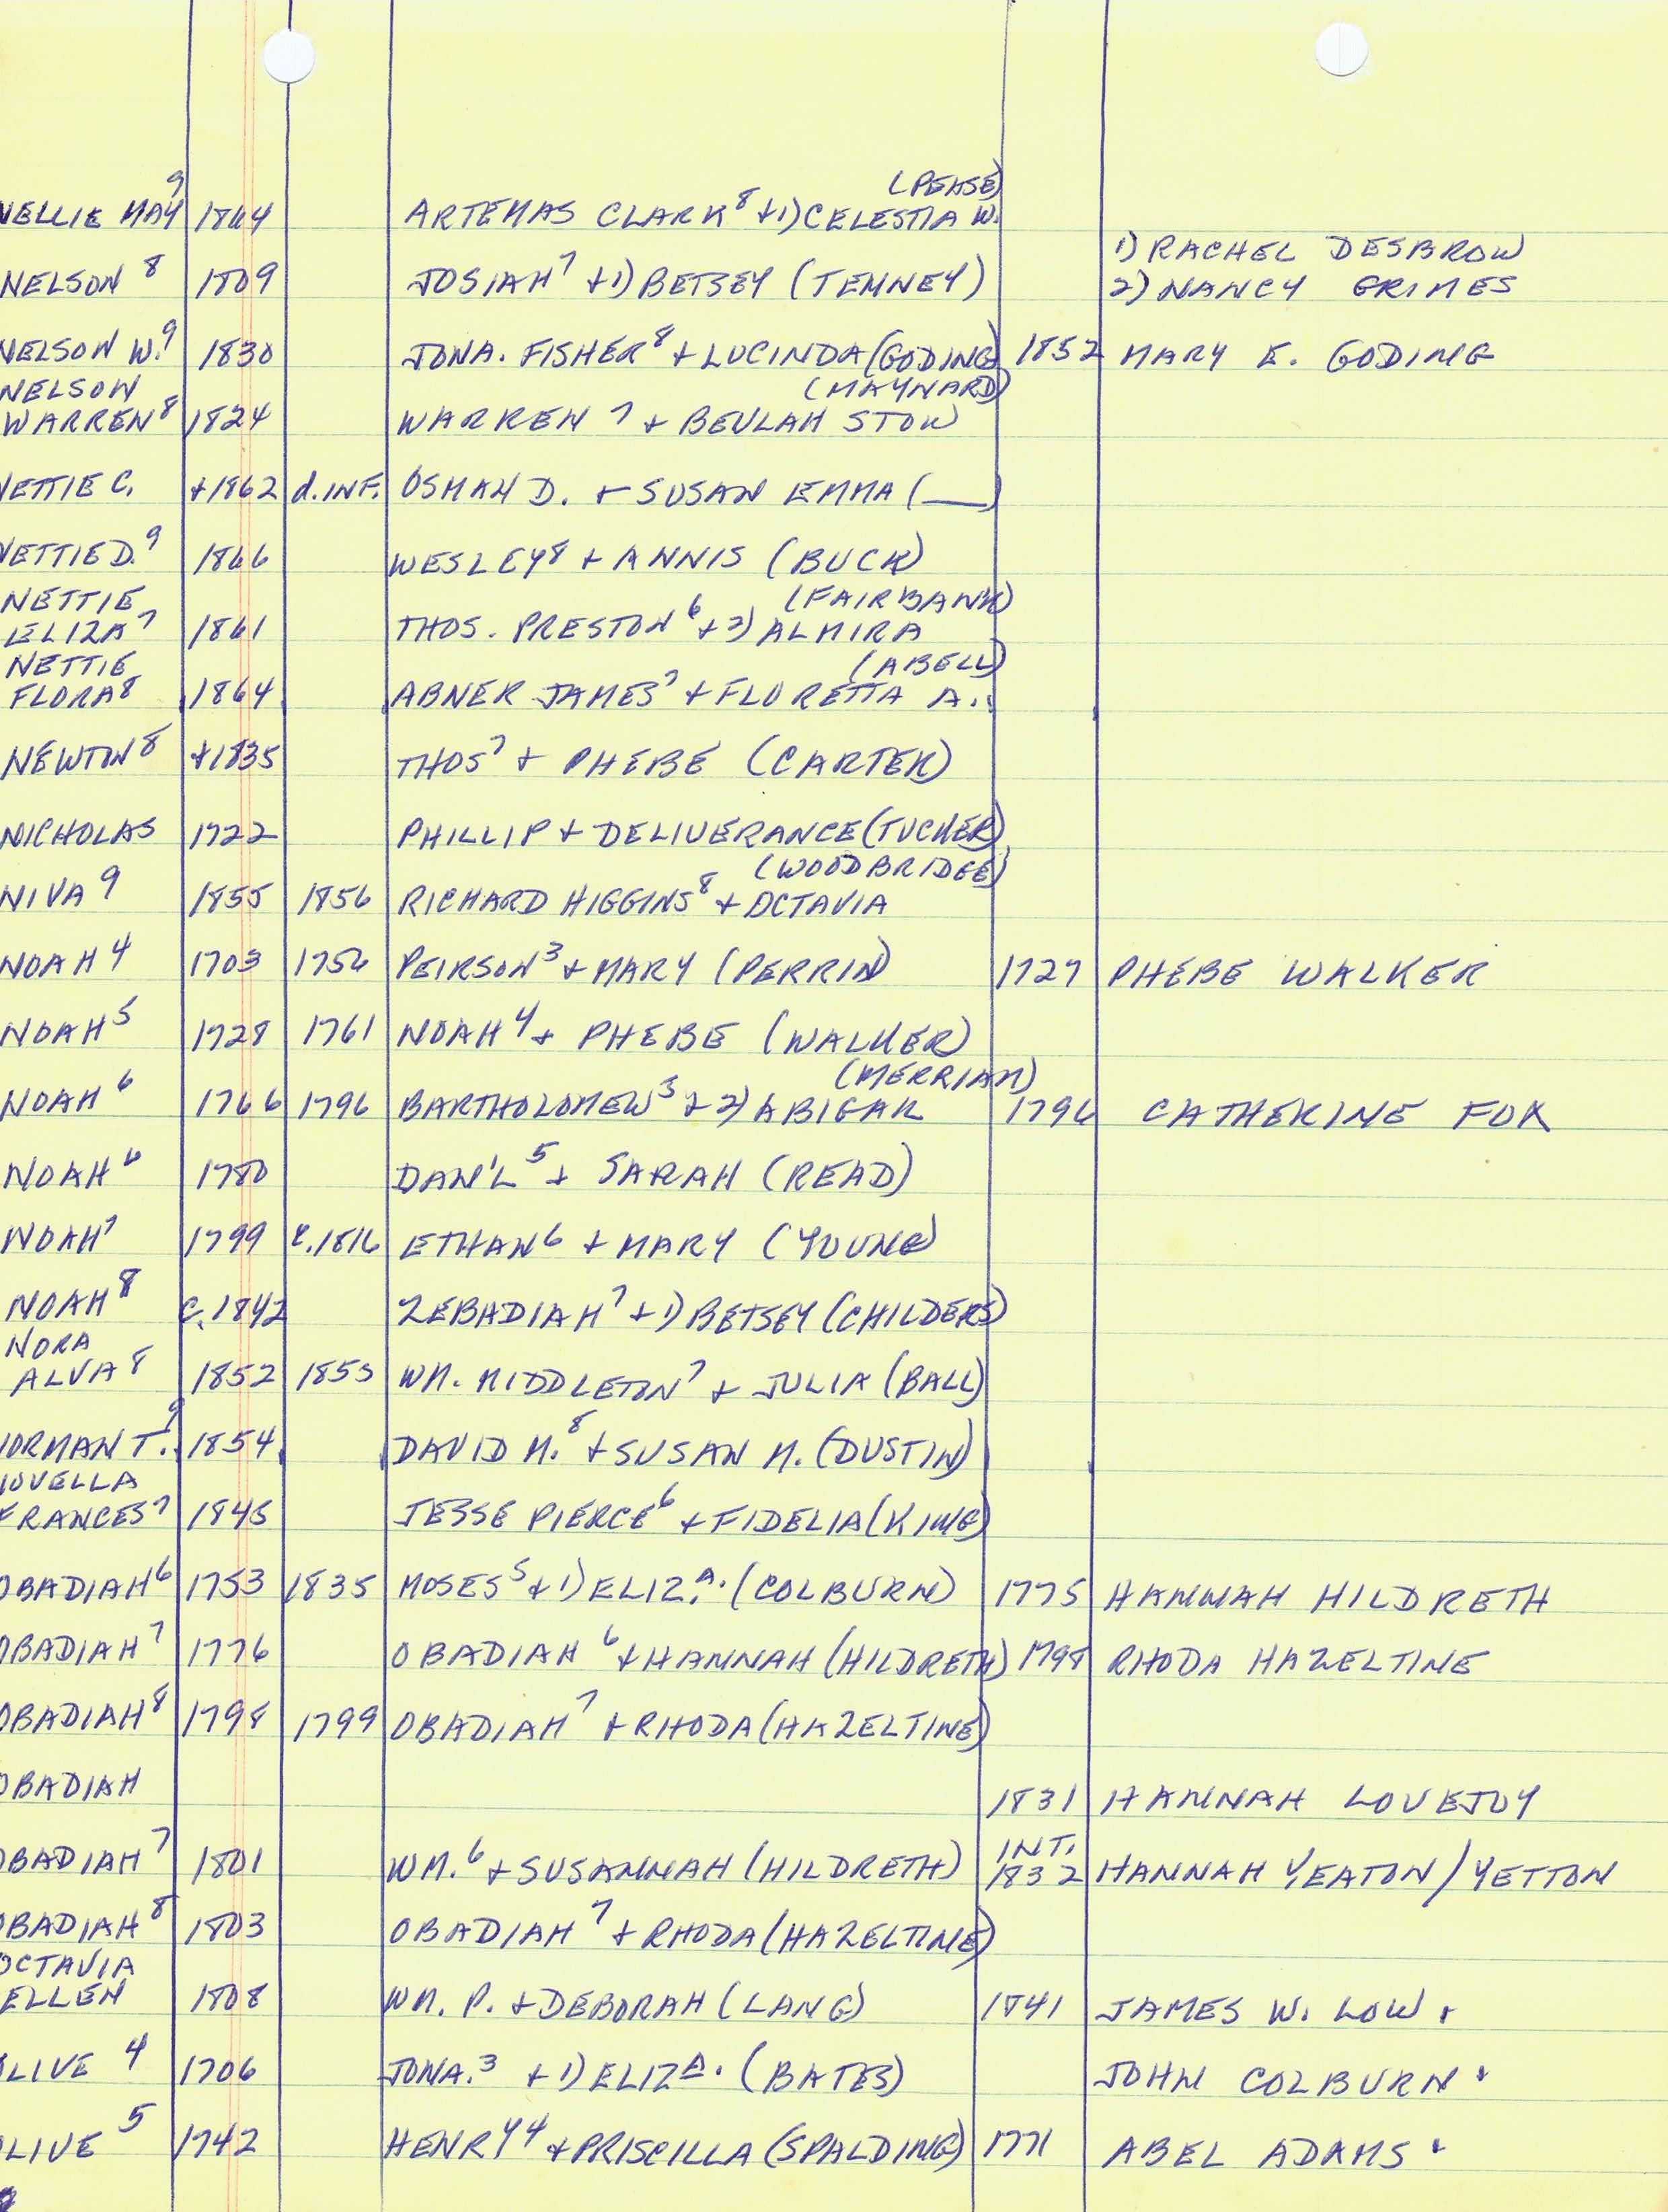 (PEASE)
NELLIE MAY 9 1864 ARTEMAS CLARK 8 + 1) CELESTIA W.
1) RACHEL DESBROW
NELSON 8 1809 JOSIAH 7 + 1) BETSEY (TENNEY) 2) NANCY GRIMES
NELSON W. 9 1830 JONA. FISHER 8 + LUCINDA (GODING) 1852 MARY E. GODING
NELSON (MAYNARD)
WARREN 8 1824 WARREN 7 + BEULAH STOW
NETTIE C. +1862 d. INF. OSMAN D. + SUSAN EMMA (___)
NETTIE D. 9 1866 WESLEY 8 + ANNIS (BUCK)
NETTIE (FAIRBANK)
ELIZA 7 1861 THOS. PRESTON 6 + 2) ALMIRA
NETTIE (ABELL)
FLORA 8 1864 ABNER JAMES 7 + FLORETTA A.
NEWTON 8 +1835 THOS 7 + PHEBE (CARTER)
NICHOLAS 1722 PHILLIP + DELIVERANCE (TUCKER)
(WOODBRIDGE)
NIVA 9 1855 1856 RICHARD HIGGINS 8 + OCTAVIA
NOAH 4 1703 1756 PEIRSON 3 + MARY (PERRIN) 1727 PHEBE WALKER
NOAH 5 1728 1761 NOAH 4 + PHEBE (WALKER)
(MERRIAM)
NOAH 6 1766 1796 BARTHOLOMEW 3 + 2) ABIGAR 1796 CATHERINE FOX
NOAH 6 1780 DAN'L 5 + SARAH (READ)
NOAH 7 1799 c.1816 ETHAN 6 + MARY (YOUNG)
NOAH 8 c.1842 ZEBADIAH 7 + 1) BETSEY (CHILDERS)
NORA
ALVA 8 1852 1853 WM. MIDDLETON 7 + JULIA (BALL)
NORMAN T. 9 1854 DAVID M. 8 + SUSAN M. (DUSTIN)
NOVELLA
FRANCES 7 1845 JESSE PIERCE 6 + FIDELIA (KING)
OBADIAH 6 1753 1835 MOSES 5 + 1) ELIZA. (COLBURN) 1775 HANNAH HILDRETH
OBADIAH 7 1776 OBADIAH 6 + HANNAH (HILDRETH) 1798 RHODA HAZELTINE
OBADIAH 8 1798 1799 OBADIAH 7 + RHODA (HAZELTINE)
OBADIAH 1831 HANNAH LOVEJOY
INT.
OBADIAH 7 1801 WM. 6 + SUSANNAH (HILDRETH) 1832 HANNAH YEATON / YETTON
OBADIAH 8 1803 OBADIAH 7 + RHODA (HAZELTINE)
OCTAVIA
ELLEN 1808 WM. P. + DEBORAH (LANG) 1841 JAMES W. LOW
OLIVE 4 1706 JONA. 3 + 1) ELIZA. (BATES) JOHN COLBURN
OLIVE 5 1742 HENRY 4 + PRISCILLA (SPALDING) 1771 ABEL ADAMS